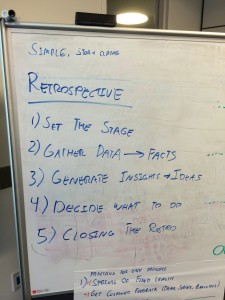 SIMPLE,
RETROSPECTIVE
1) SET THE STAGE
2) GATHER DATA → FACTS
3) GENERATE INSIGHTS → IDEAS
4) DECIDE WHAT TO DO
5) CLOSING THE RETRO